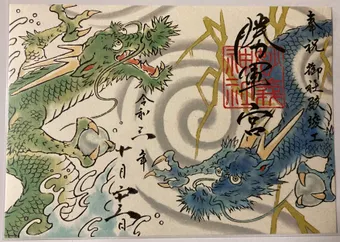 奉祝 御社殿竣工
勝軍宮
令和六年
十月
日